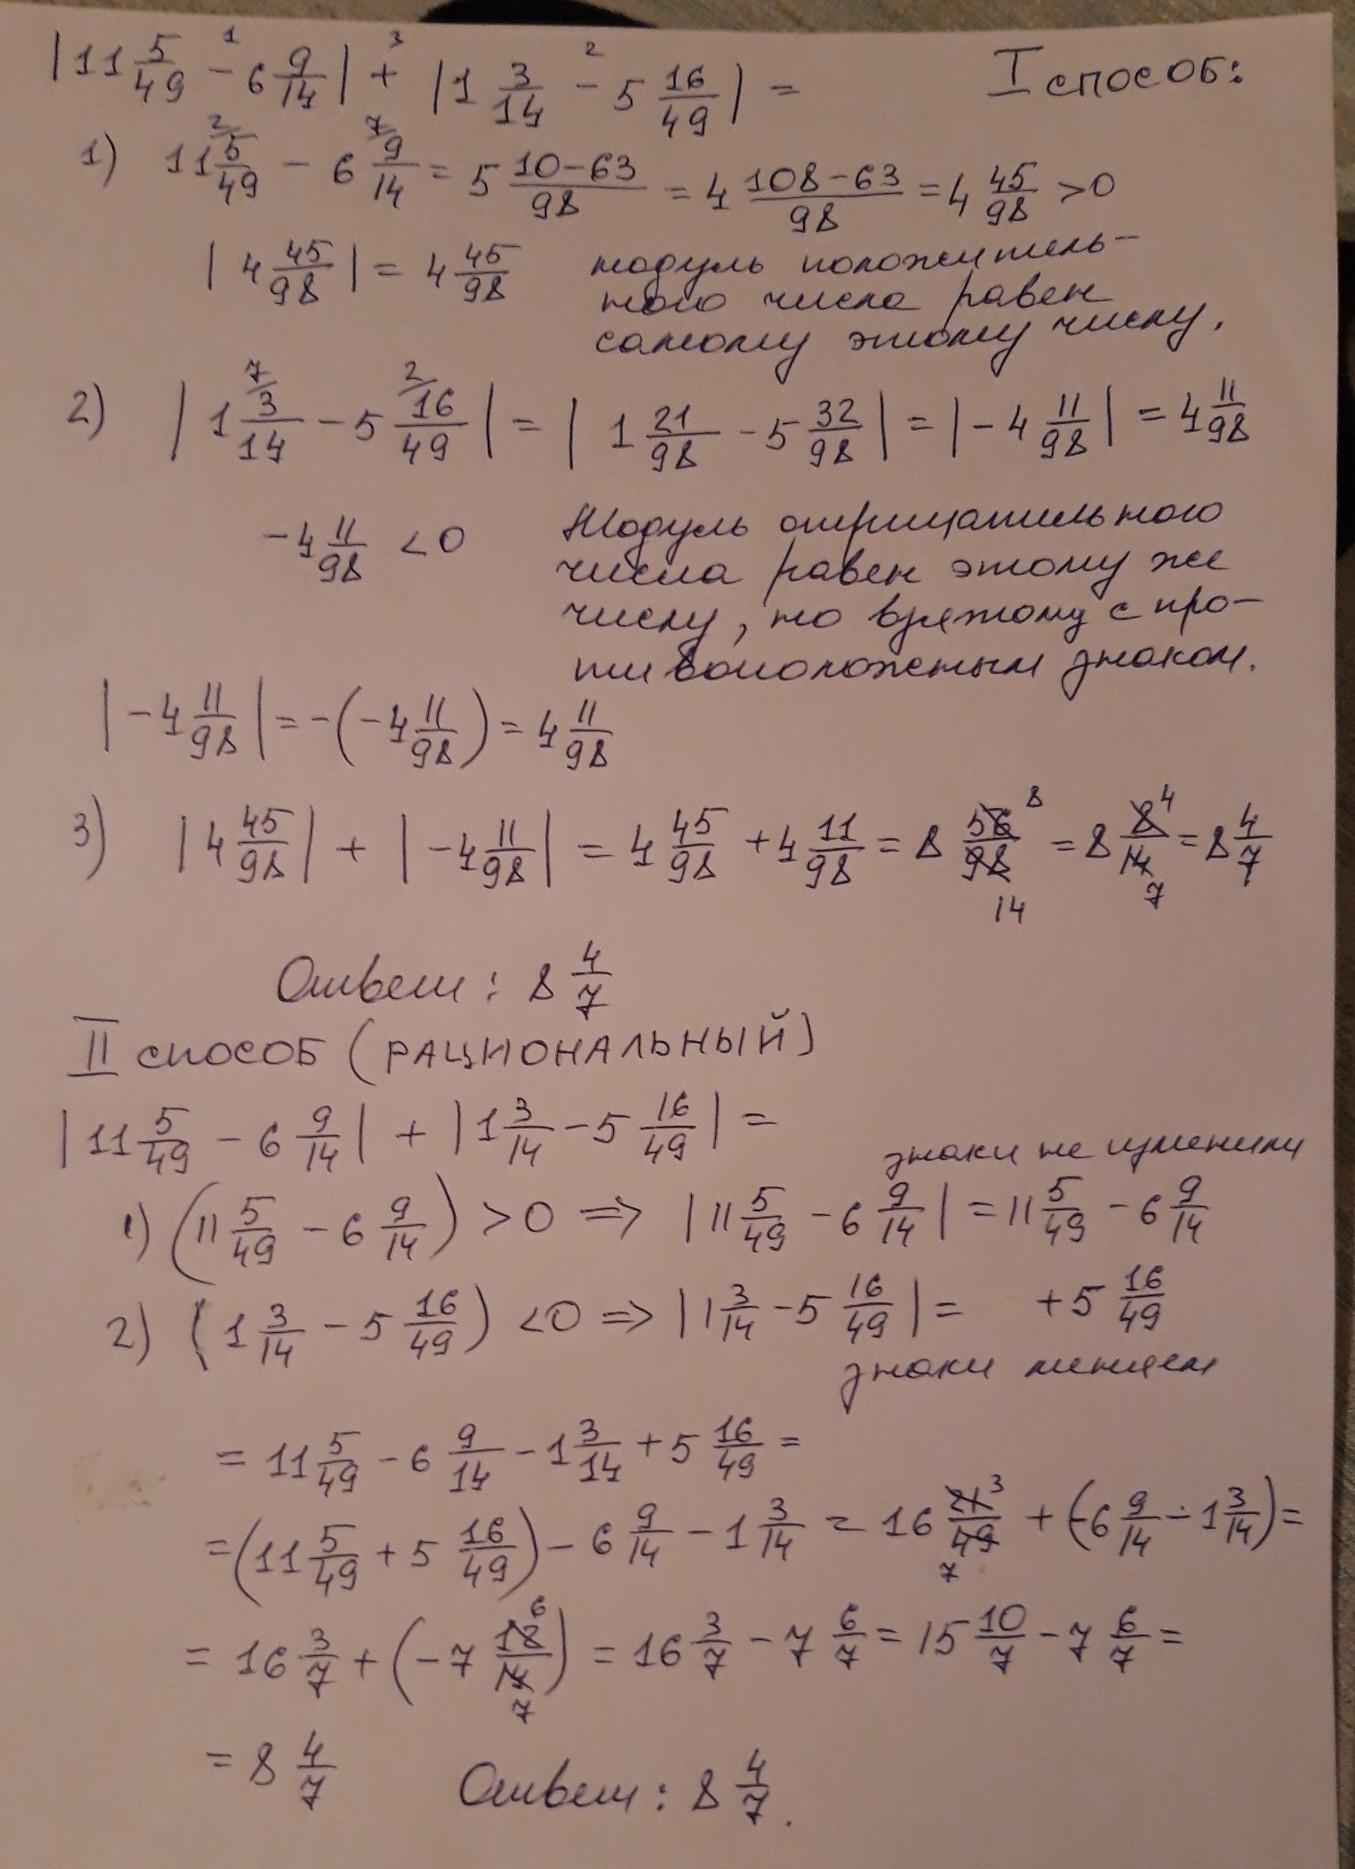 |11 5/49 - 6 9/14| + |1 3/14 - 5 16/49| = I способ:
1) 11 5/49 - 6 9/14 = 5 (10-63)/98 = 4 (108-63)/98 = 4 45/98 > 0
|4 45/98| = 4 45/98 модуль положитель-
ного числа равен
самому этому числу.
2) |1 3/14 - 5 16/49| = |1 21/98 - 5 32/98| = |-4 11/98| = 4 11/98
-4 11/98 < 0 Модуль отрицательного
числа равен этому же
числу, но взятому с про-
тивоположным знаком.
|-4 11/98| = -(-4 11/98) = 4 11/98
3) |4 45/98| + |-4 11/98| = 4 45/98 + 4 11/98 = 8 56/98 = 8 8/14 = 8 4/7
Ответ: 8 4/7
II способ (РАЦИОНАЛЬНЫЙ)
|11 5/49 - 6 9/14| + |1 3/14 - 5 16/49| =
знаки не изменили
1) (11 5/49 - 6 9/14) > 0 ⇒ |11 5/49 - 6 9/14| = 11 5/49 - 6 9/14
2) (1 3/14 - 5 16/49) < 0 ⇒ |1 3/14 - 5 16/49| = + 5 16/49
знаки меняем
= 11 5/49 - 6 9/14 - 1 3/14 + 5 16/49 =
= (11 5/49 + 5 16/49) - 6 9/14 - 1 3/14 = 16 21/49 + (-6 9/14 - 1 3/14) =
= 16 3/7 + (-7 12/14) = 16 3/7 - 7 6/7 = 15 10/7 - 7 6/7 =
= 8 4/7 Ответ: 8 4/7.